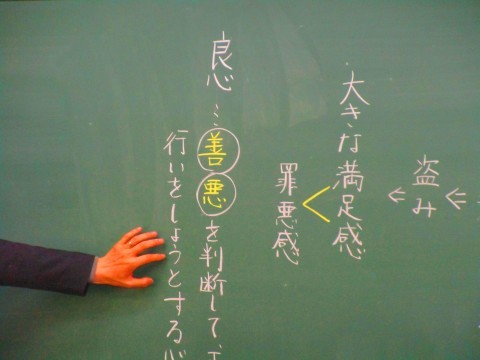 盗み
大きな満足感
罪悪感
良心…善悪を判断して、
行いをしようとする心